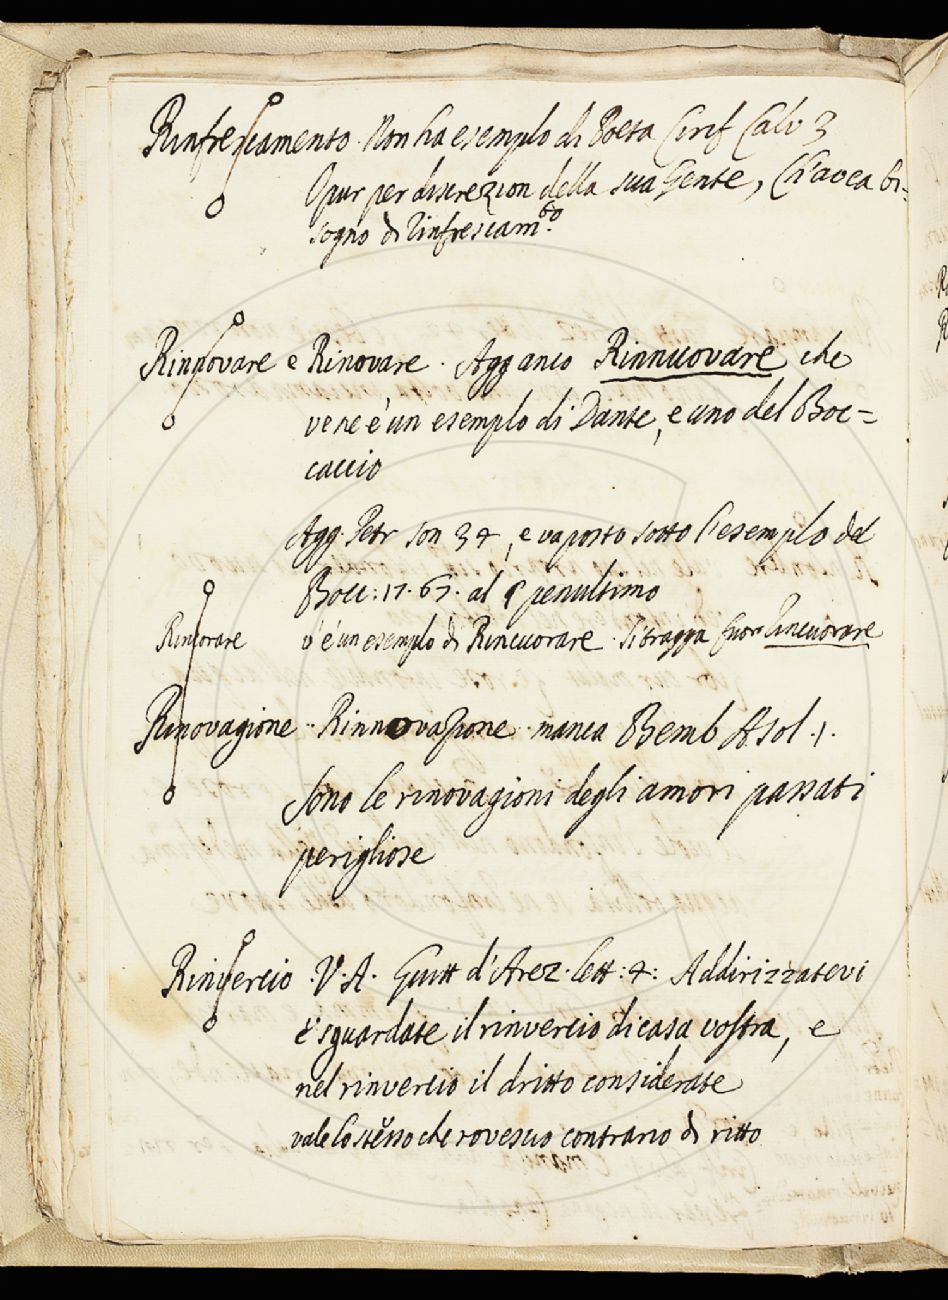 Rinfrescamento. Non ha esemplo di Poeta Cirif Calv 3
Pur per discrezion della sua Gente, Ch'avea bi-
sogno di rinfrescam.to
Rinnovare e Rinovare. Agg anco Rinnuovare che
ve ne è un esemplo di Dante, e uno del Boc=
caccio
Agg. Petr son 34, e va posto sotto l'esemplo del
Bocc: 17. 67. al § penultimo
Rincorare v'è un esemplo di Rincuorare. Si tragga fuor Rincuorare
Rinovagione. Rinnovazione manca Bemb Asol. 1.
Sono le rinovagioni degli amori passati
perigliose
Rinvercio. V. A. Guitt d'Arez. lett: 4: Addirizzatevi
e sguardate il rinvercio di casa vostra, e
nel rinvercio il dritto considerate
vale lo stesso che rovescio contrario di ritto